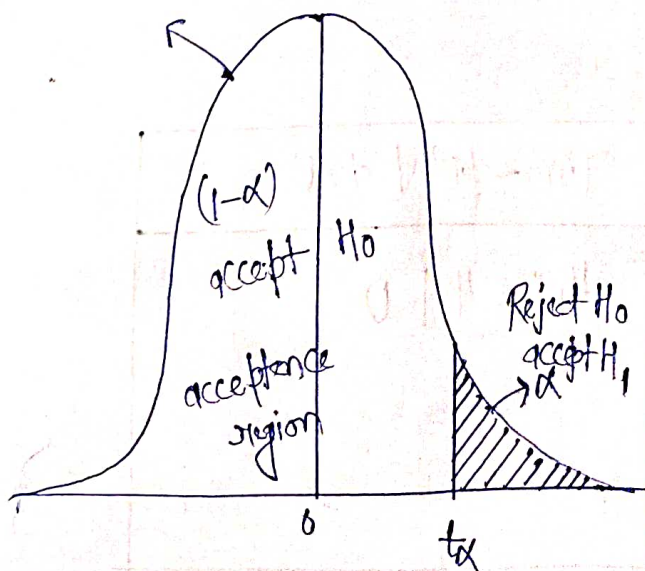 (1-α)
accept H0
acceptance
region
Reject H0
accept H1
α
0
tα